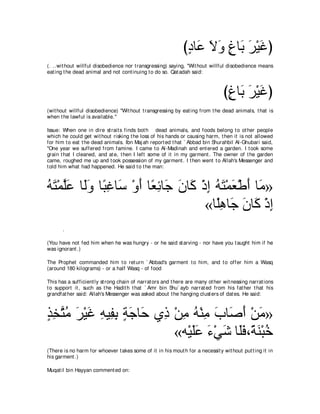 (غَيْرَ بَاغٍ وَلاَ عَادٍ)
(. ..without willful disobedience nor transgressing) saying, "Without willful disobedience means
eating the dead animal and not continuing to do so. Qatadah said:
(غَيْرَ بَاغٍ)
(without willful disobedience) "Without transgressing by eating from the dead animals, that is
when the lawful is available.''
Issue: When one in dire straits finds both dead animals, and foods belong to other people
which he could get without risking the loss of his hands or causing harm, then it is not allowed
for him to eat the dead animals. Ibn Majah reported that `Abbad bin Shurahbil Al-Ghubari said,
"One year we suffered from famine. I came to Al-Madinah and entered a garden. I took some
grain that I cleaned, and ate, then I left some of it in my garment. The owner of the garden
came, roughed me up and took possession of my garment. I then went to Allah's Messenger and
told him what had happened. He said to the man:
«مَا أَطْعَمْتَهُ إِذْ كَانَ جَائِعًا أَوْ سَاغِبًا وَلَا عَلَّمْتَهُ
إِذْ كَانَ جَاهِلًا»
.
(You have not fed him when he was hungry - or he said starving - nor have you taught him if he
was ignorant.)
The Prophet commanded him to return `Abbad's garment to him, and to offer him a Wasq
(around 180 kilograms) - or a half Wasq - of food
This has a sufficiently strong chain of narrators and there are many other witnessing narrations
to support it, such as the Hadith that `Amr bin Shu`ayb narrated from his father that his
grandfather said: Allah's Messenger was asked about the hanging clusters of dates. He said:
«مَنْ أَصَابَ مِنْهُ مِنْ ذِي حَاجَةٍ بِفِيهِ غَيْرَ مُتَّخِذٍ
خُبْنَةً، فَلَا شَيْءَ عَلَيْهِ»
(There is no harm for whoever takes some of it in his mouth for a necessity without putting it in
his garment.)
Muqatil bin Hayyan commented on: